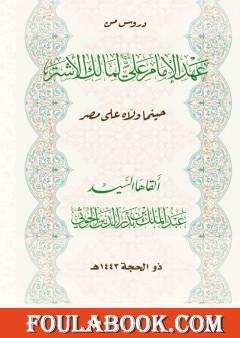 دروس من
عهد الإمام علي لمالك الأشتر
حينما ولاه على مصر
ألقاها السيد
عبدالملك بدرالدين الحوثي
ذو الحجة ١٤٤٣هـ
FOULABOOK.COM